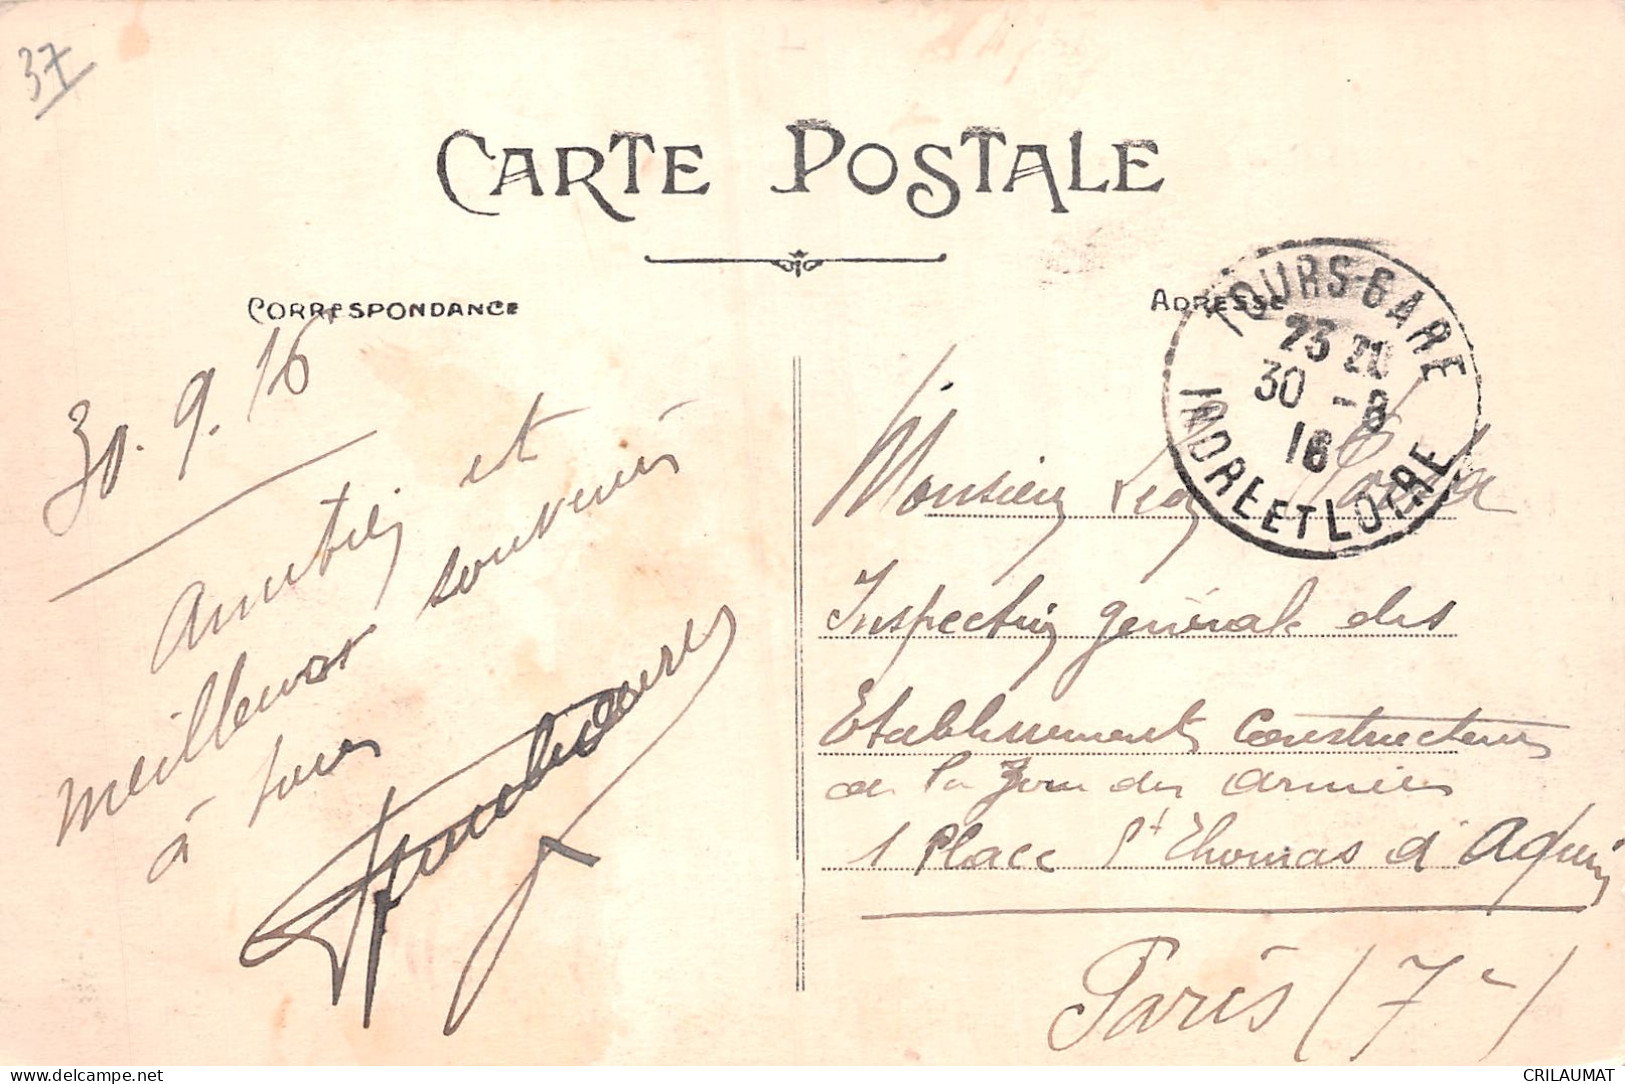 37
CARTE POSTALE
CORRESPONDANCE
ADRESSE
TOURS-GARE
23
30 -8
16
INDRE ET LOIRE
30.9.16
Amitiés et
meilleurs souvenirs
à tous
Monsieur Léon
Inspection générale des
Etablissements Constructeurs
de la Zone des Armées
1 Place St Thomas d'Aquin
Paris (7e)
DELCAMPE CRILAUMAT